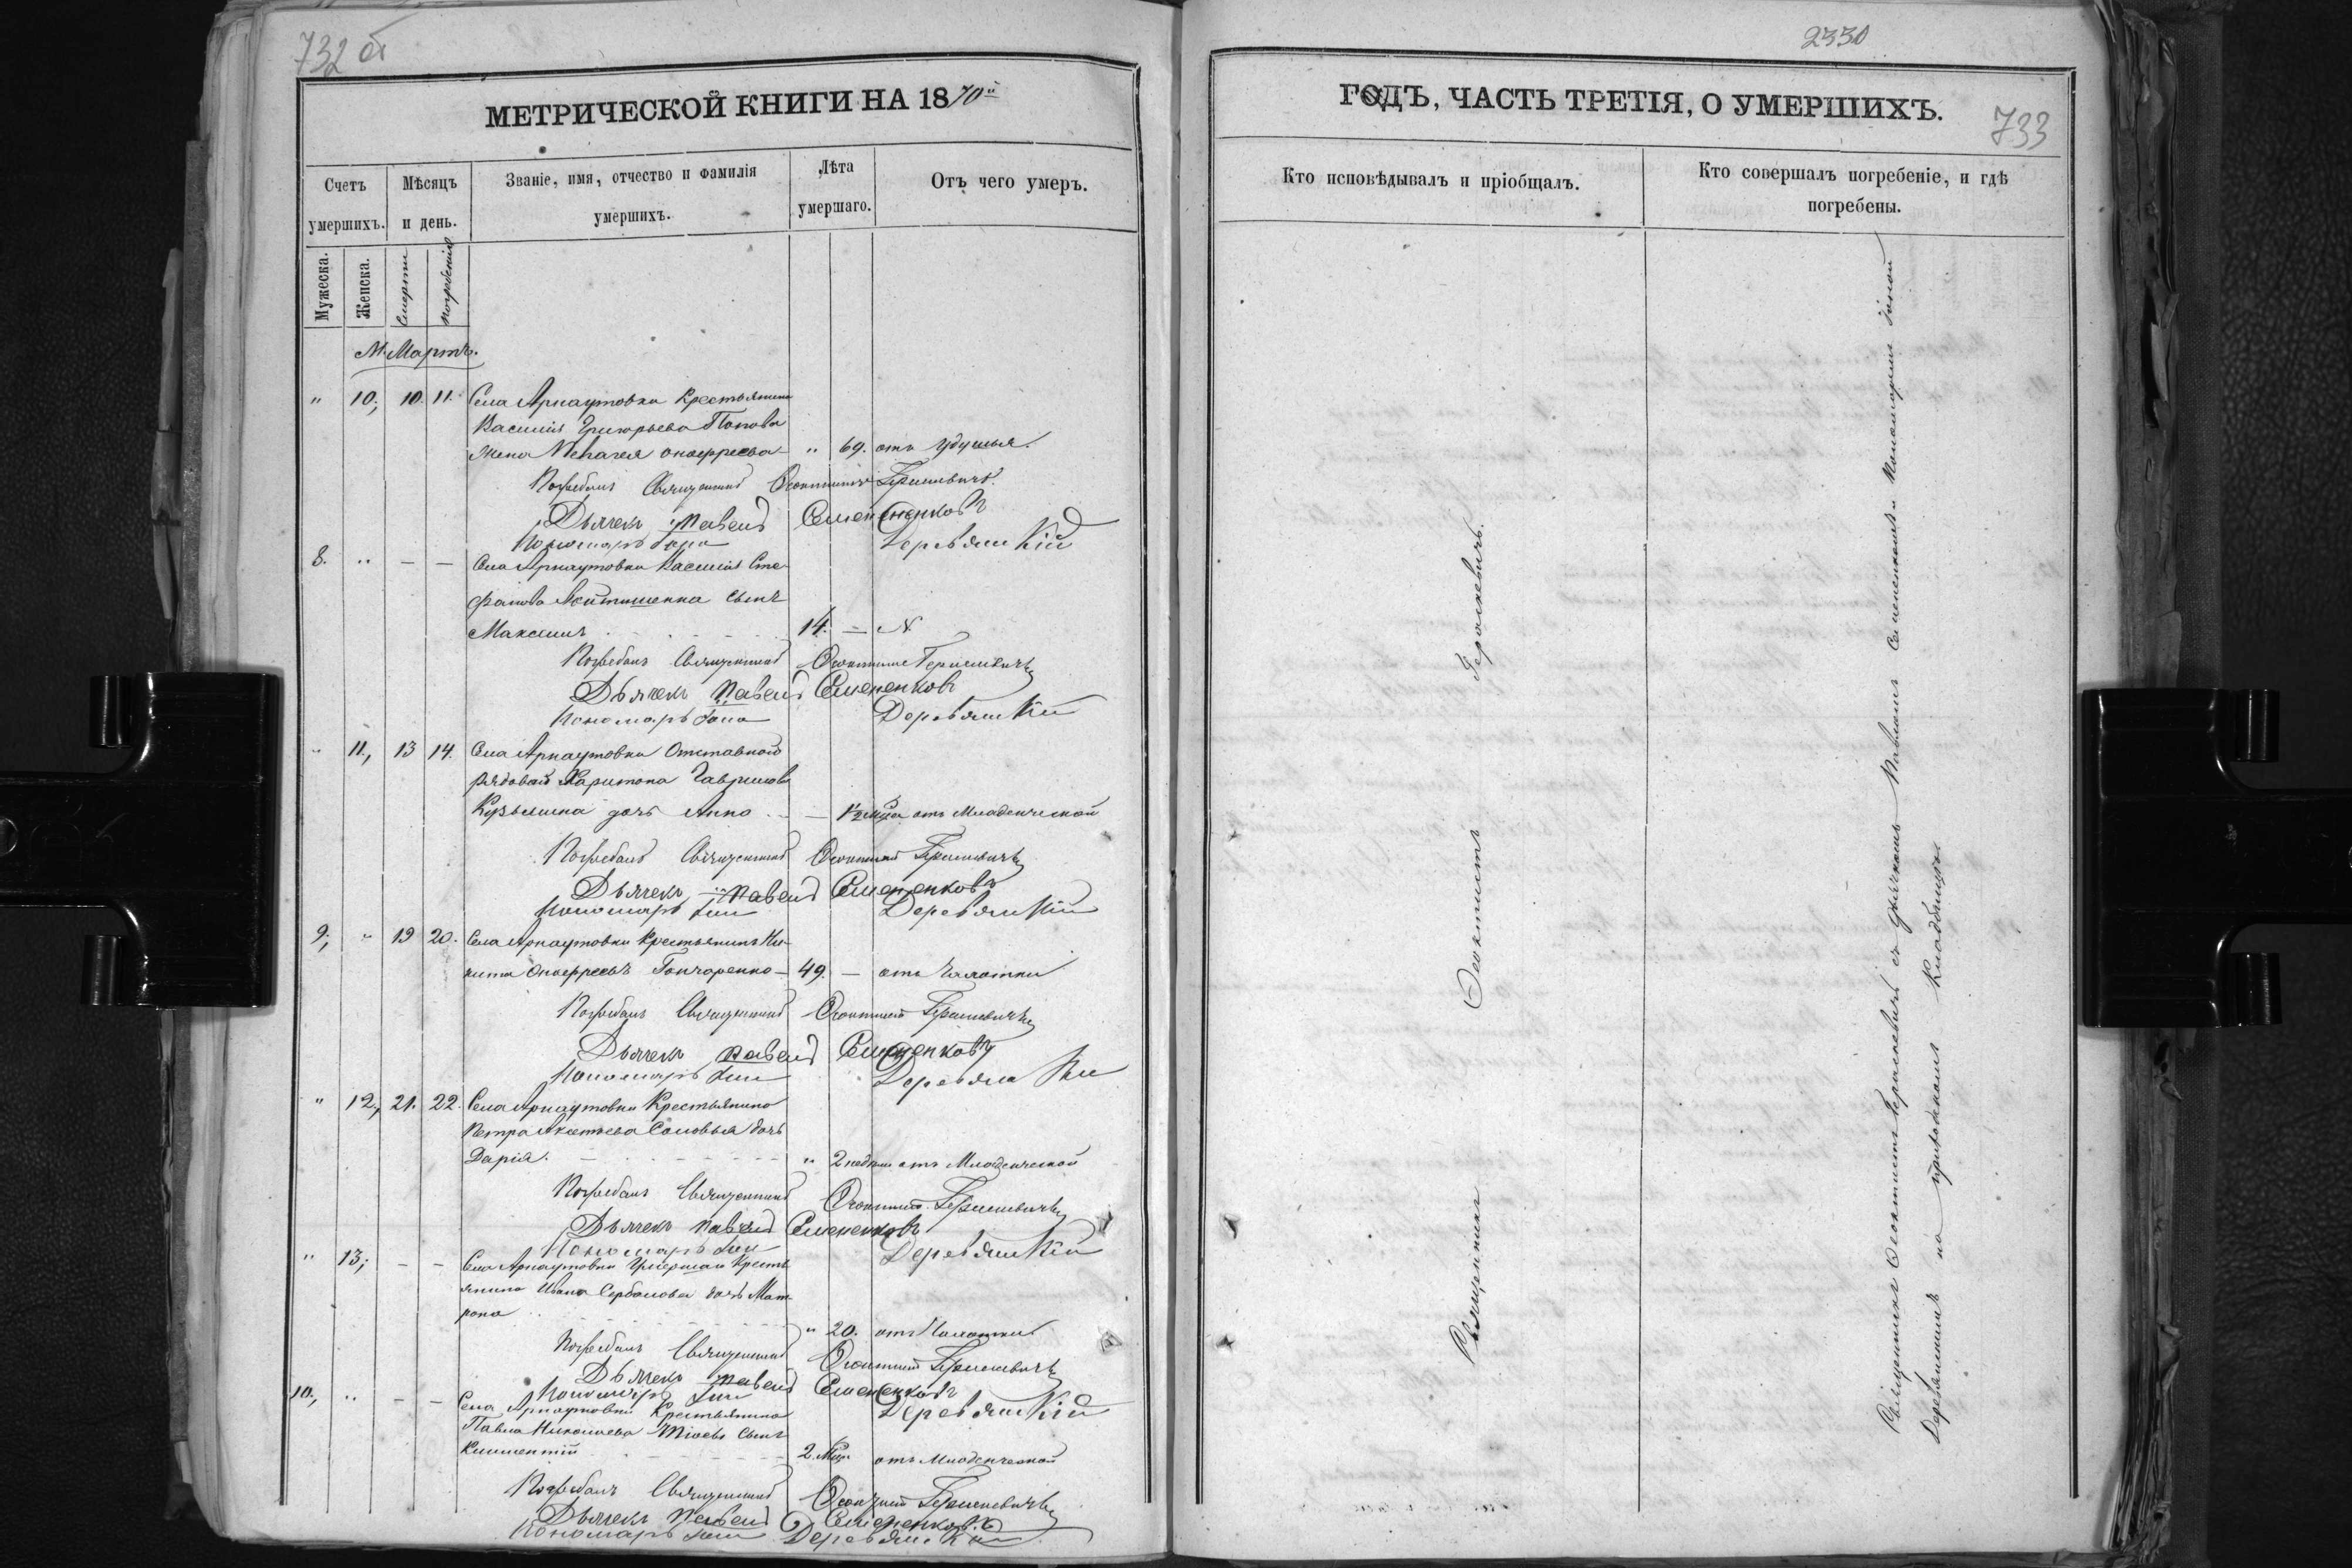 732 об
МЕТРИЧЕСКОЙ КНИГИ НА 1870й
Счетъ умершихъ.
Мѣсяцъ и день.
Званіе, имя, отчество и фамилія умершихъ.
Лѣта умершаго.
Отъ чего умеръ.
Мужеска.
Женска.
Смерти
погребенія
М. Мартъ.
" 10; 10. 11. Села Арнаутовки крестьянина
Василія Григорьева Попова
жена Пелагея Оноефреева " 69. отъ удушья.
Погребалъ Священникъ Феоктистъ Гералкевичъ
Дьячекъ Павелъ Семененковъ
Пономарь Іона Деревянкій
8. " — — Села Арнаутовки Василія Сте-
фанова сынъ
Максимъ 14. — N
Погребалъ Священникъ Феоктистъ Гералкевичъ
Дьячекъ Павелъ Семененковъ
Пономарь Іона Деревянкій
" 11, 13 14. Села Арнаутовки Отставного
рядового Харитона Гаврилова
дочь Анна — 1½ мца отъ Младенческой
Погребалъ Священникъ Феоктистъ Гералкевичъ
Дьячекъ Павелъ Семененковъ
Пономарь Іона Деревянкій
9; " 19 20. Села Арнаутовки крестьянинъ Ни-
кита Оноефреевъ Гончаренко — 49. — отъ чахотки
Погребалъ Священникъ Феоктистъ Гералкевичъ
Дьячекъ Павелъ Семененковъ
Пономарь Іона Деревянкій
" 12, 21. 22. Села Арнаутовки Крестьянина
Петра Соловья дочь
Дарія. " 2 недѣли отъ Младенческой
Погребалъ Священникъ Феоктистъ Гералкевичъ
Дьячекъ Павелъ Семененковъ
Пономарь Іона Деревянкій
" 13; — — Села Арнаутовки кресть-
янина Ивана дочь Мат-
рона " 20. отъ чахотки
Погребалъ Священникъ Феоктистъ Гералкевичъ
Дьячекъ Павелъ Семененковъ
Пономарь Іона Деревянкій
10, " — — Села Арнаутовки Крестьянина
Павла Николаева сынъ
Климентій 2. Мца отъ Младенческой
Погребалъ Священникъ Феоктистъ Гералкевичъ
Дьячекъ Павелъ Семененковъ
Пономарь Іона Деревянкій
2330
ГОДЪ, ЧАСТЬ ТРЕТІЯ, О УМЕРШИХЪ.
733
Кто исповѣдывалъ и пріобщалъ.
Кто совершалъ погребеніе, и гдѣ
погребены.
Священникъ Феоктистъ Гералкевичъ.
Священникъ Феоктистъ Гералкевичъ съ дьячкомъ Павломъ Семененкомъ и Пономаремъ Іоной
Деревянкимъ на приходскомъ Кладбищѣ